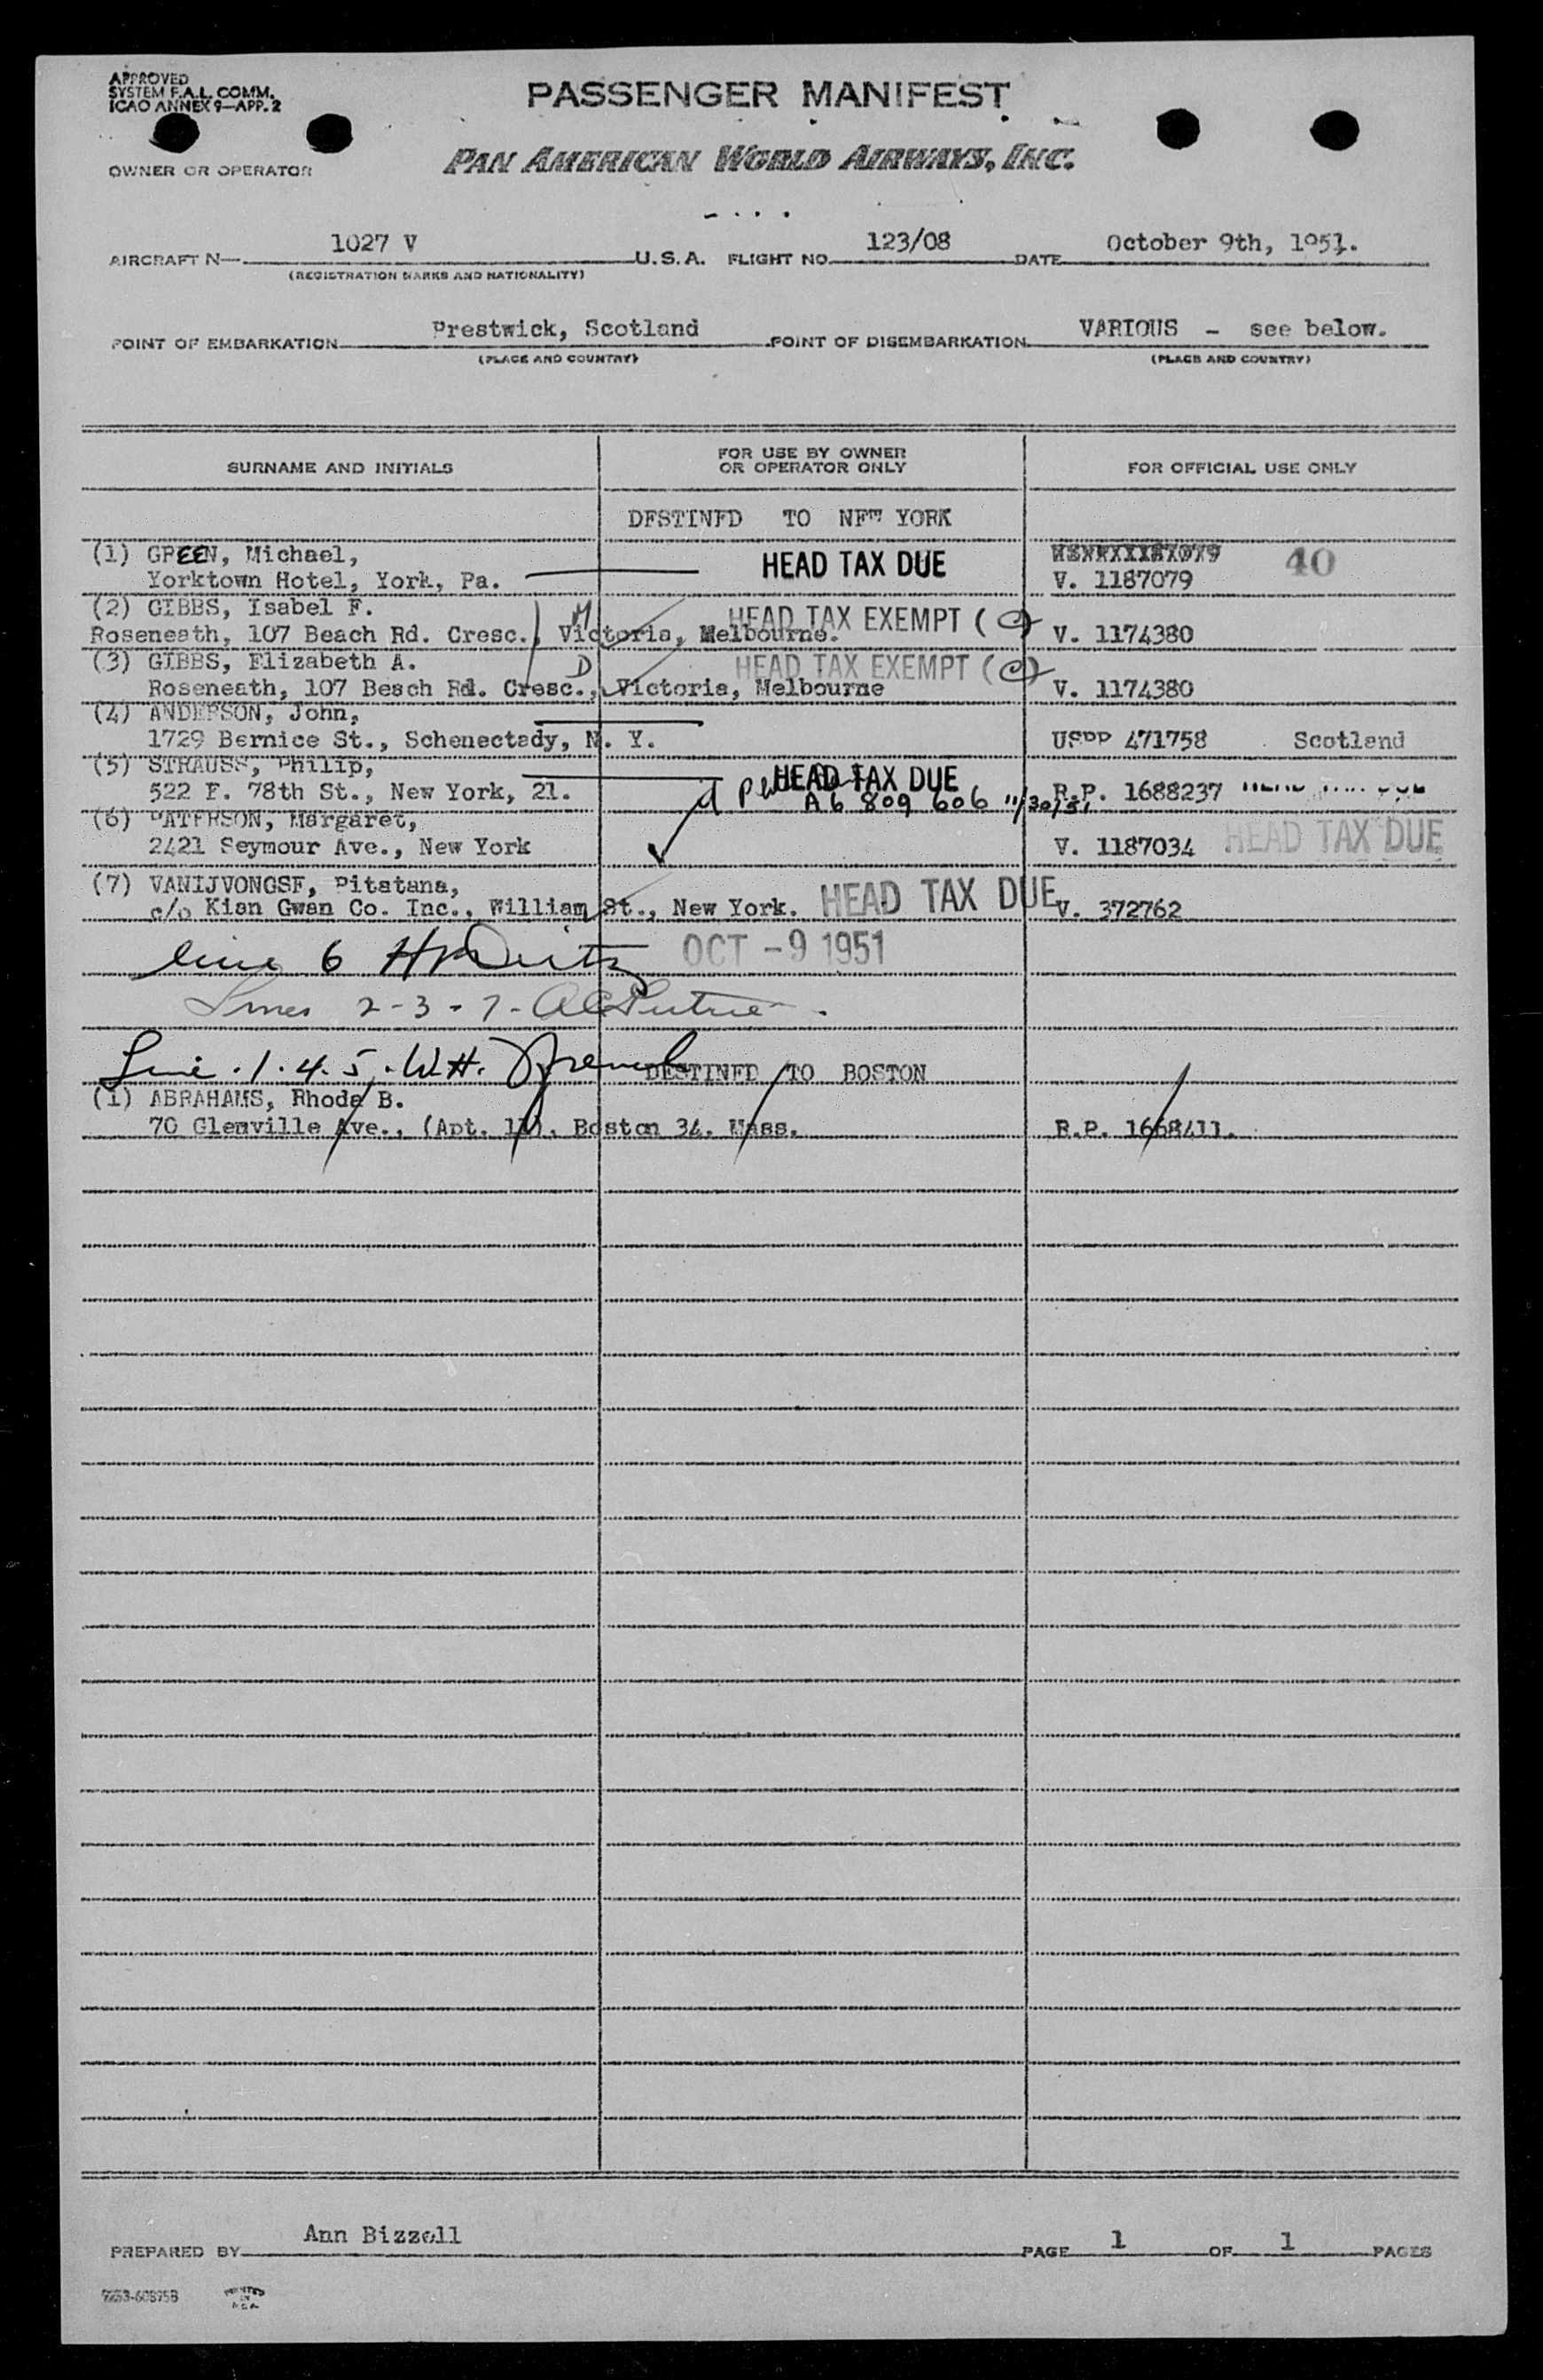 APPROVED
SYSTEM F.A.L. COMM.
ICAO ANNEX 9—APP. 2
PASSENGER MANIFEST
OWNER OR OPERATOR
PAN AMERICAN WORLD AIRWAYS, INC.
AIRCRAFT N— 1027 V U.S.A. FLIGHT NO 123/08 DATE October 9th, 1951.
(REGISTRATION MARKS AND NATIONALITY)
POINT OF EMBARKATION Prestwick, Scotland POINT OF DISEMBARKATION VARIOUS - see below.
(PLACE AND COUNTRY) (PLACE AND COUNTRY)
SURNAME AND INITIALS FOR USE BY OWNER OR OPERATOR ONLY FOR OFFICIAL USE ONLY
DESTINED TO NEW YORK
(1) GREEN, Michael, HEAD TAX DUE 40
Yorktown Hotel, York, Pa. V. 1187079
(2) GIBBS, Isabel F. M HEAD TAX EXEMPT (C)
Roseneath, 107 Beach Rd. Cresc., Victoria, Melbourne. V. 1174380
(3) GIBBS, Elizabeth A. D HEAD TAX EXEMPT (C)
Roseneath, 107 Beach Rd. Cresc., Victoria, Melbourne V. 1174380
(4) ANDERSON, John,
1729 Bernice St., Schenectady, N. Y. USPP 471758 Scotland
(5) STRAUSS, Philip, HEAD TAX DUE
522 E. 78th St., New York, 21. A6 809 606 11/30/51 R.P. 1688237 HEAD TAX DUE
(6) PATERSON, Margaret,
2421 Seymour Ave., New York V. 1187034 HEAD TAX DUE
(7) VANIJVONGSE, Pitatana,
c/o Kian Gwan Co. Inc., William St., New York. HEAD TAX DUE V. 372762
line 6 OCT -9 1951
Lines 2-3-7-
Line . 1. 4. 5. W.H. DESTINED TO BOSTON
(1) ABRAHAMS, Rhoda B.
70 Glenville Ave., (Apt. 11), Boston 34. Mass. R.P. 1668411.
PREPARED BY Ann Bizzell PAGE 1 OF 1 PAGES
PRINTED
IN